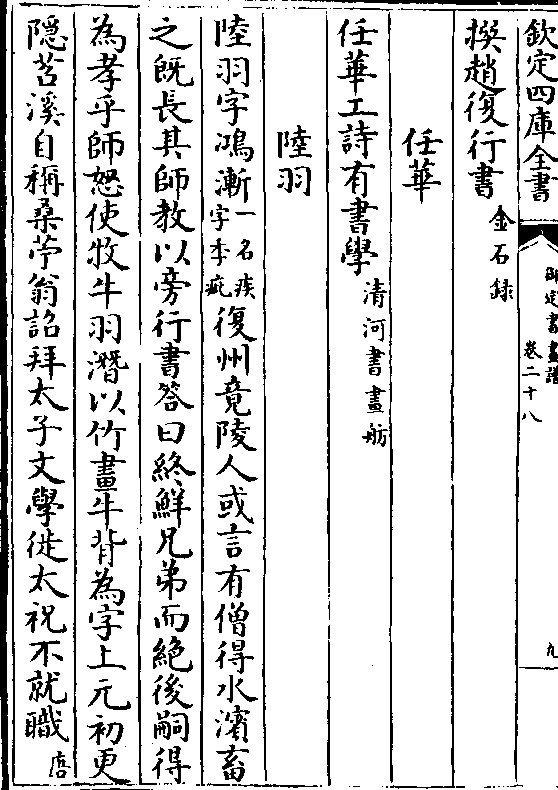 欽定四庫全書
御定書畫譜
卷二十八
九
撰趙復行書金石録
任華
任華工詩有書學清河書畫舫
陸羽
陸羽字鴻漸一名疾字季疵復州竟陵人或言有僧得水濱畜
之既長其師教以旁行書答曰終鮮兄弟而絶後嗣得
為孝乎師怒使牧牛羽潛以竹畫牛背為字上元初更
隠苕溪自稱桑苧翁詔拜太子文學徙太祝不就職唐